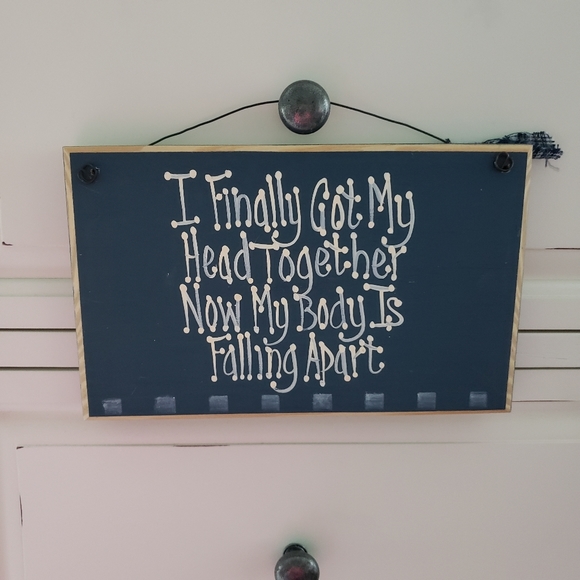 I Finally Got My
Head Together
Now My Body Is
Falling Apart